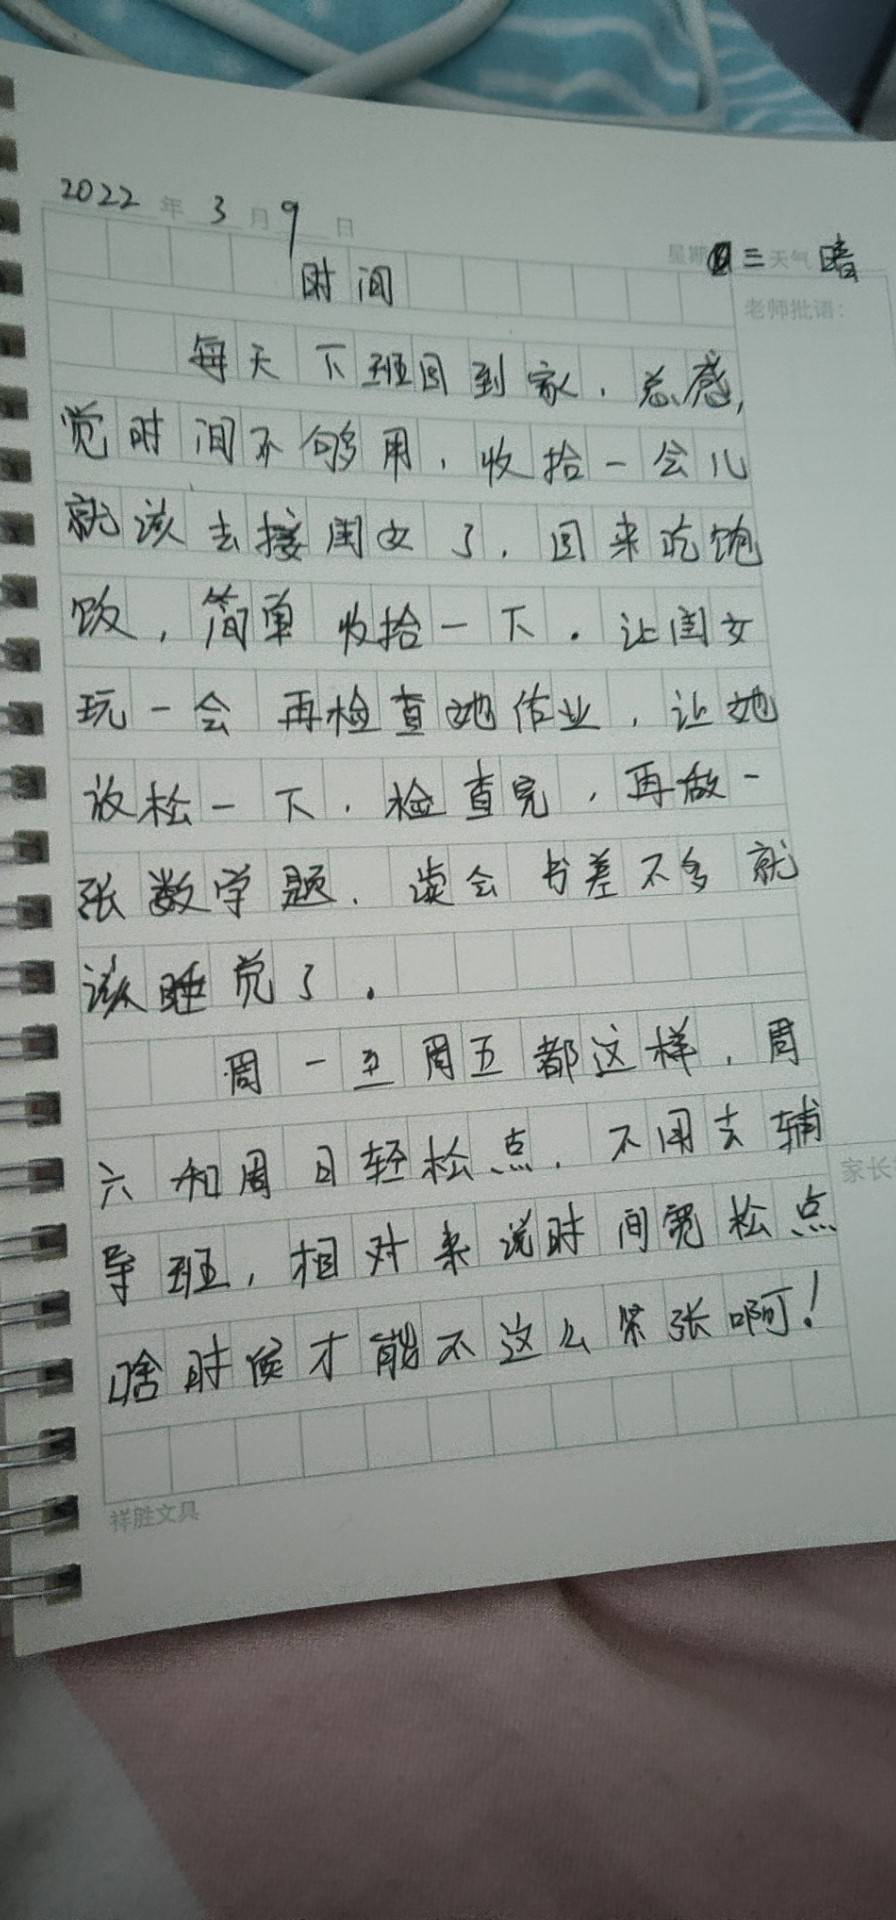 2022年3月9日
星期三 天气 暗
时间
老师批语：
每天下班回到家，总感，
觉时间不够用，收拾一会儿
就该去接闺女了，回来吃饱
饭，简单收拾一下。让闺女
玩一会再检查她作业，让她
放松一下，检查完，再做一
张数学题，读会书差不多就
该睡觉了。
周一至周五都这样，周
六和周日轻松点，不用去辅
家长
导班，相对来说时间宽松点
啥时候才能不这么紧张啊！
祥胜文具